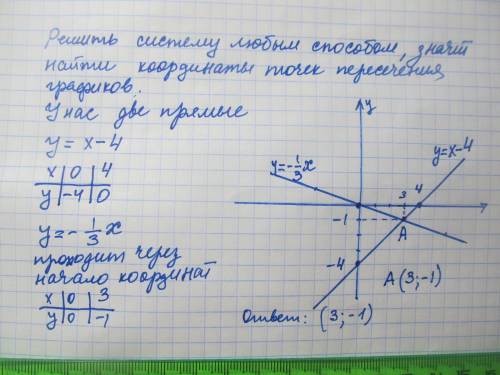 Решить систему любым способом, значит
найти координаты точек пересечения
графиков.
У нас две прямые
y = x-4
x 0 4
y -4 0
y = - 1/3 x
проходит через
начало координат
x 0 3
y 0 -1
y
y=x-4
y=-1/3x
3 4
-1
A
-4
A(3;-1)
Ответ: (3;-1)